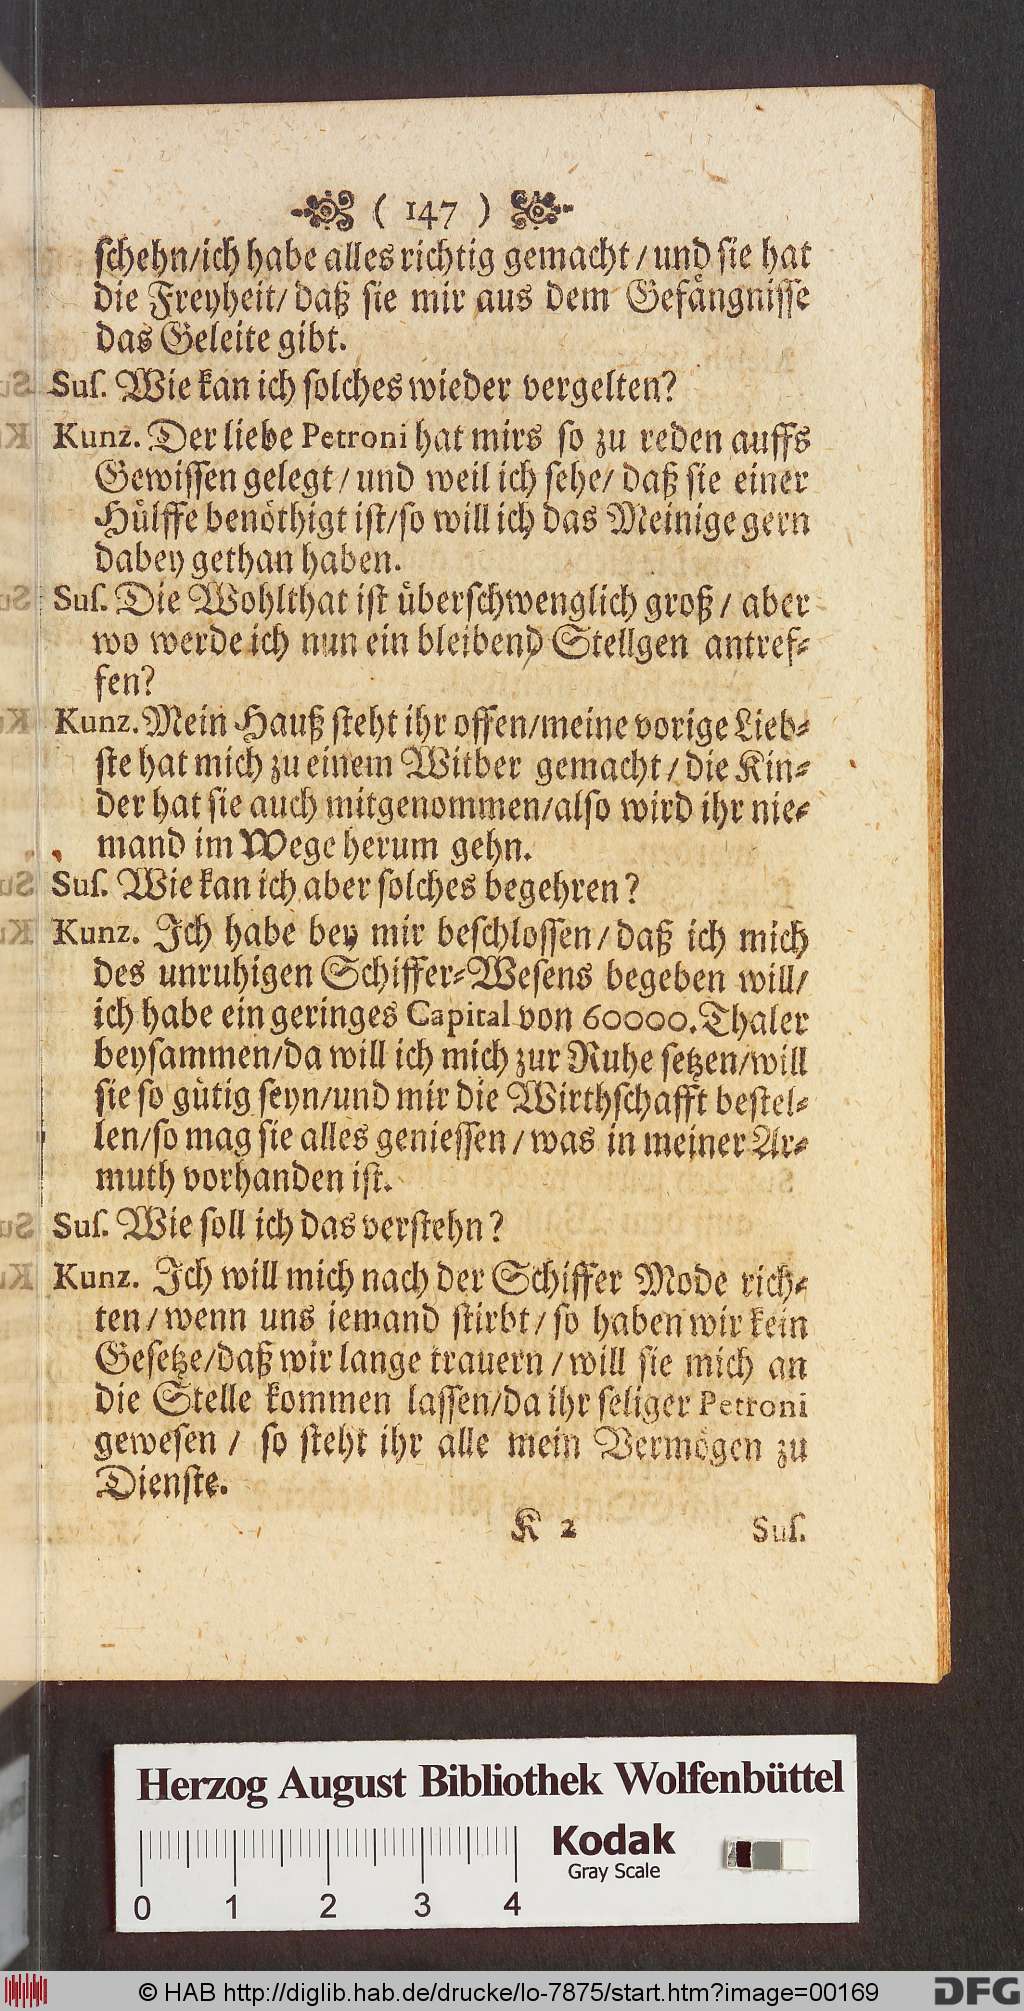 ( 147 )
schehn/ich habe alles richtig gemacht / und sie hat
die Freyheit/ daß sie mir aus dem Gefängnisse
das Geleite gibt.
Sus. Wie kan ich solches wieder vergelten?
Kunz. Der liebe Petroni hat mirs so zu reden auffs
Gewissen gelegt / und weil ich sehe/ daß sie einer
Hülffe benöthigt ist/so will ich das Meinige gern
dabey gethan haben.
Sus. Die Wohlthat ist überschwenglich groß / aber
wo werde ich nun ein bleibend Stellgen antref-
fen?
Kunz. Mein Hauß steht ihr offen/meine vorige Lieb-
ste hat mich zu einem Witber gemacht / die Kin-
der hat sie auch mitgenommen/also wird ihr nie-
mand im Wege herum gehn.
Sus. Wie kan ich aber solches begehren?
Kunz. Ich habe bey mir beschlossen / daß ich mich
des unruhigen Schiffer-Wesens begeben will/
ich habe ein geringes Capital von 60000. Thaler
beysammen/da will ich mich zur Ruhe setzen/will
sie so gütig seyn/und mir die Wirthschafft bestel-
len/so mag sie alles geniessen / was in meiner Ar-
muth vorhanden ist.
Sus. Wie soll ich das verstehn?
Kunz. Ich will mich nach der Schiffer Mode rich-
ten / wenn uns iemand stirbt / so haben wir kein
Gesetze/daß wir lange trauern / will sie mich an
die Stelle kommen lassen/da ihr seliger Petroni
gewesen / so steht ihr alle mein Vermögen zu
Dienste.
K 2 Sus.
Herzog August Bibliothek Wolfenbüttel
Kodak
Gray Scale
0 1 2 3 4
© HAB http://diglib.hab.de/drucke/lo-7875/start.htm?image=00169
DFG